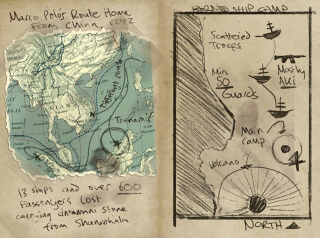 Marco Polo's Route Home
From China, 1292
Different Route
SIAM
Tsunami
13 ships and over 600
Passengers Lost
carrying Cintamani Stone
from Shambhala
BORNEO SHIP CAMP
Scattered
Troops
Min
50
Guards
Mostly
AKs
Main
camp
Volcano?
NORTH